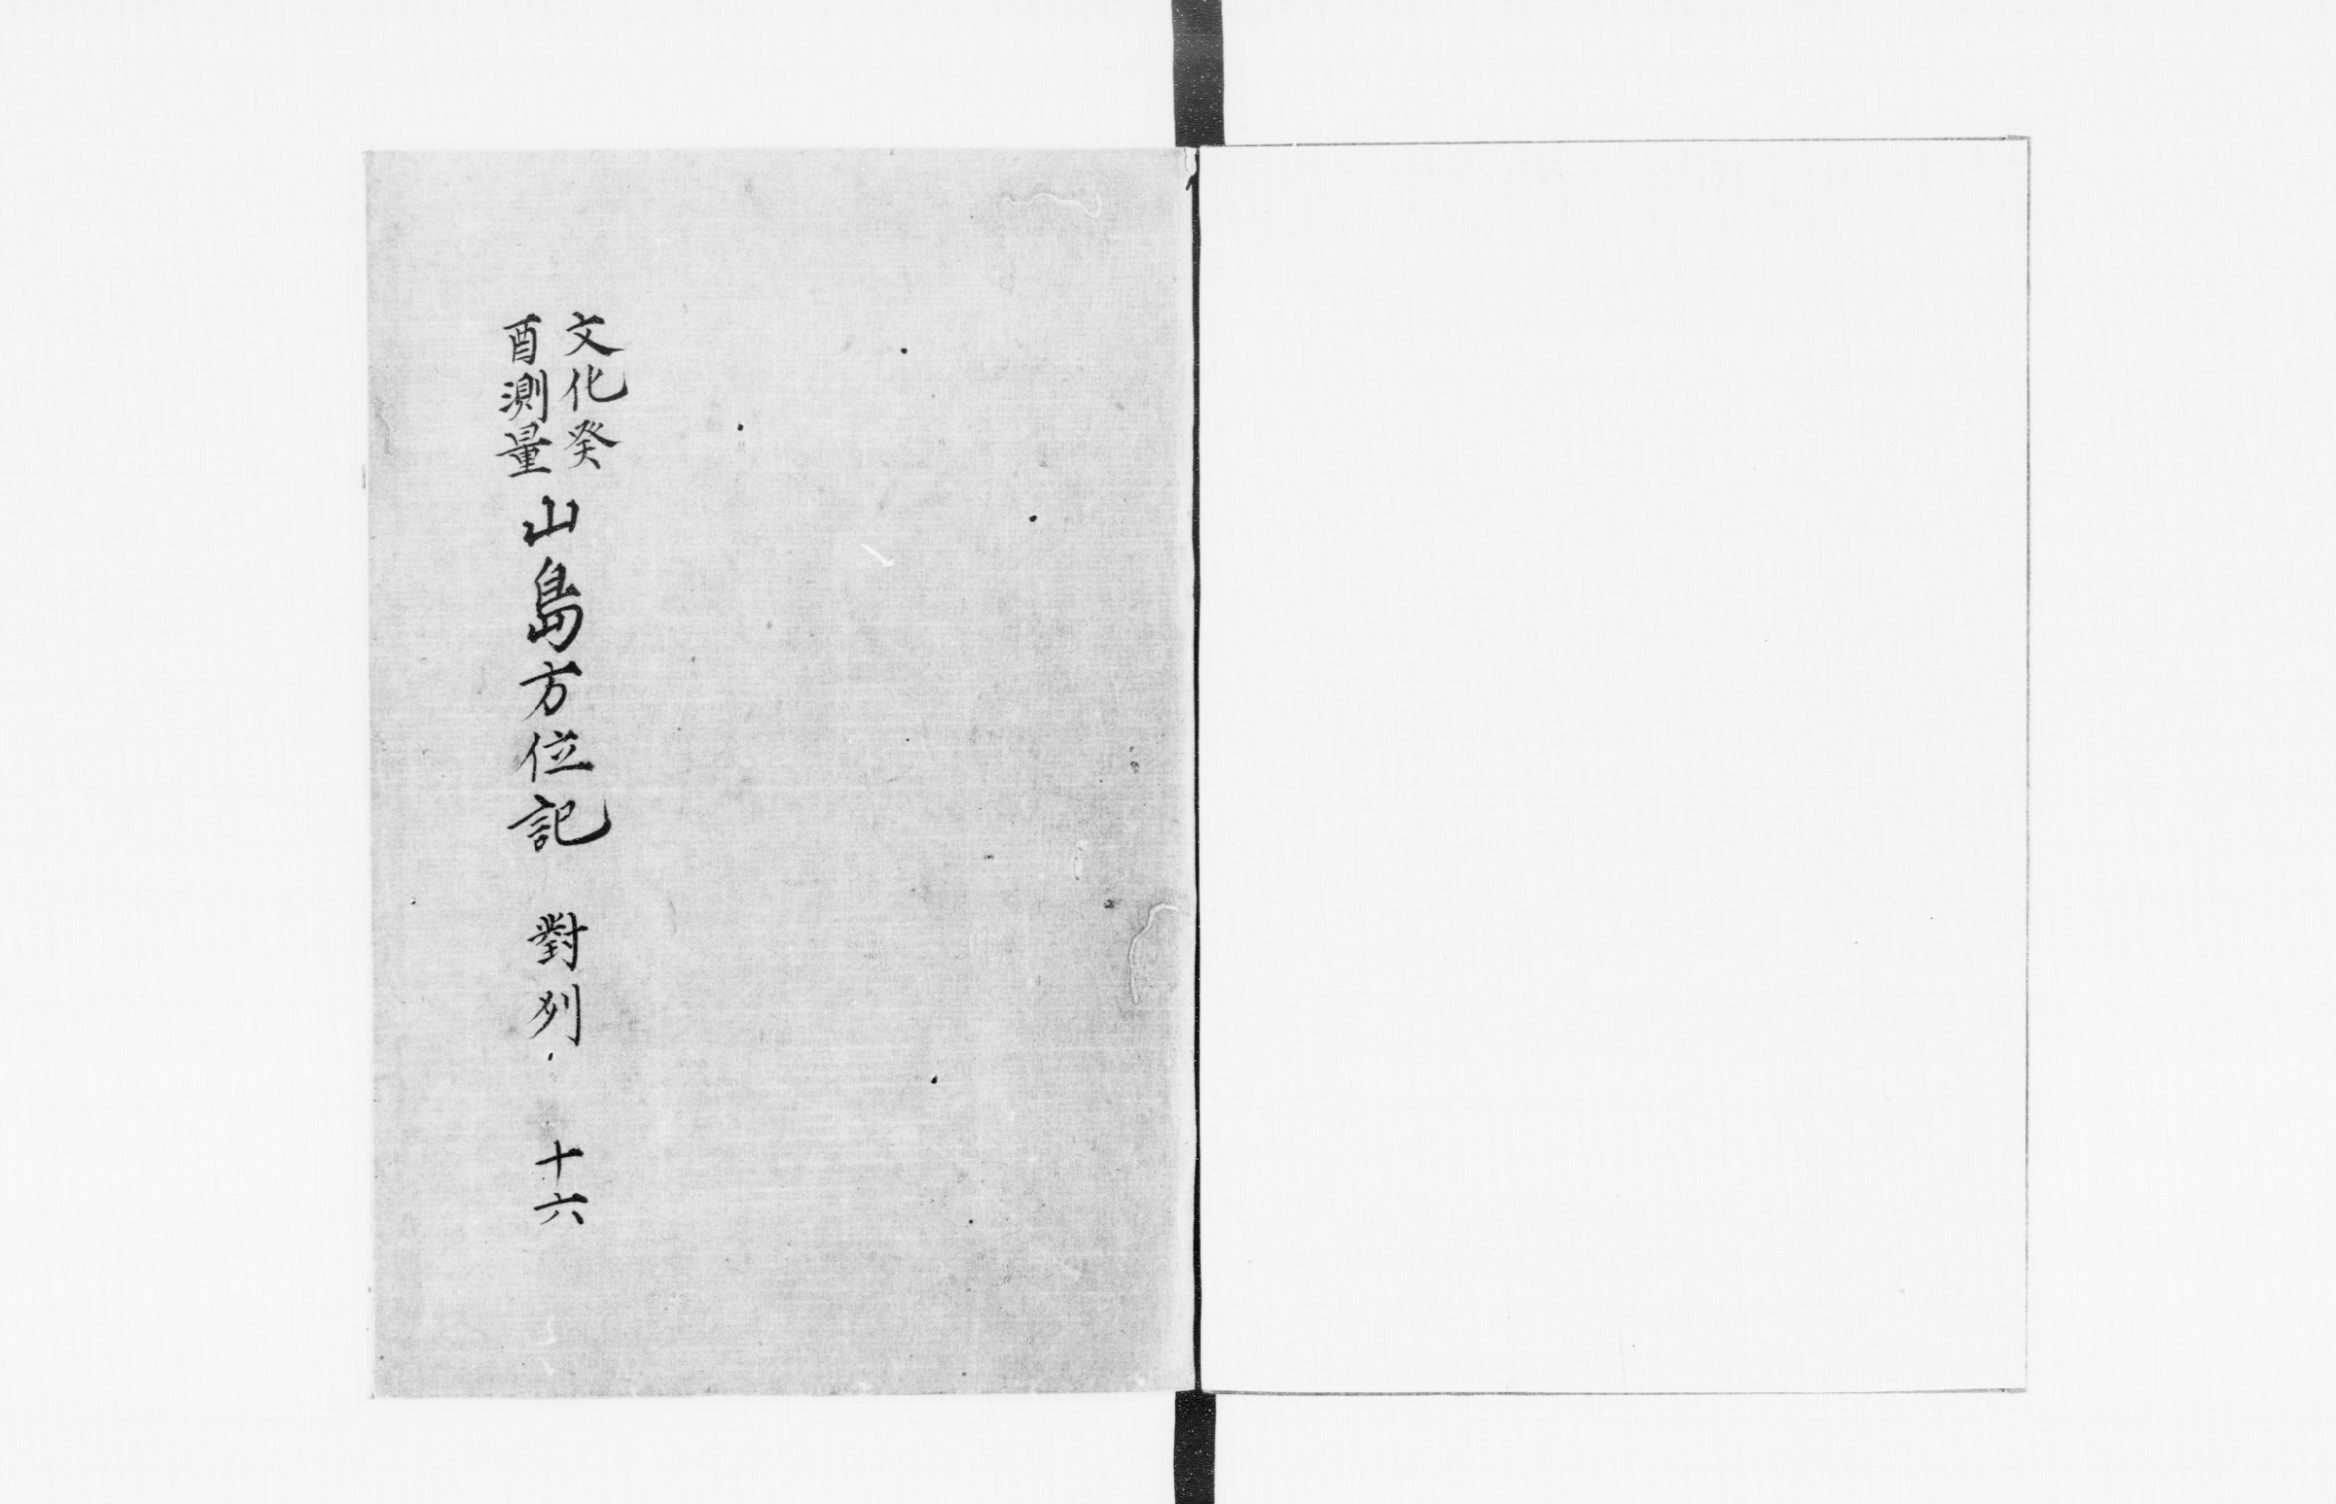 文化癸
酉測量
山島方位記 對列 十六